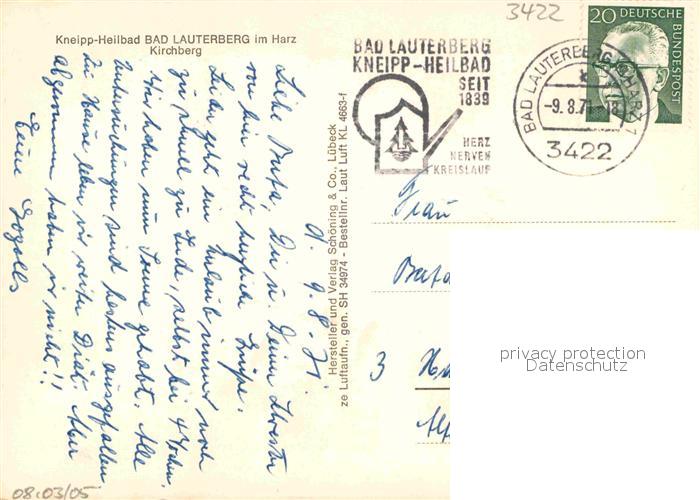 Kneipp-Heilbad BAD LAUTERBERG im Harz
Kirchberg
3422
BAD LAUTERBERG
KNEIPP-HEILBAD
SEIT
1839
HERZ
NERVEN
KREISLAUF
BAD LAUTERBERG (HARZ) 1
-9.8.71-18
3422
20 DEUTSCHE
BUNDESPOST
d. 9. 8. 71.
Liebe Buta, Dir u. Deiner Schwester
von hier recht herzliche Grüße.
Leider geht ein Urlaub immer noch
zu schnell zu Ende, selbst bei 4 Wochen.
Wir haben nun Sonne gehabt. Alle
Untersuchungen sind bestens ausgefallen
Zu Hause leben wir weiter Diät. Aber
abgenommen haben wir nicht!!
Eure
Hersteller und Verlag Schöning & Co., Lübeck
ze Luftaufn., gen. SH 34974 - Bestellnr. Laut Luft KL 4663-f
Frau
3
privacy protection
Datenschutz
08.03/05